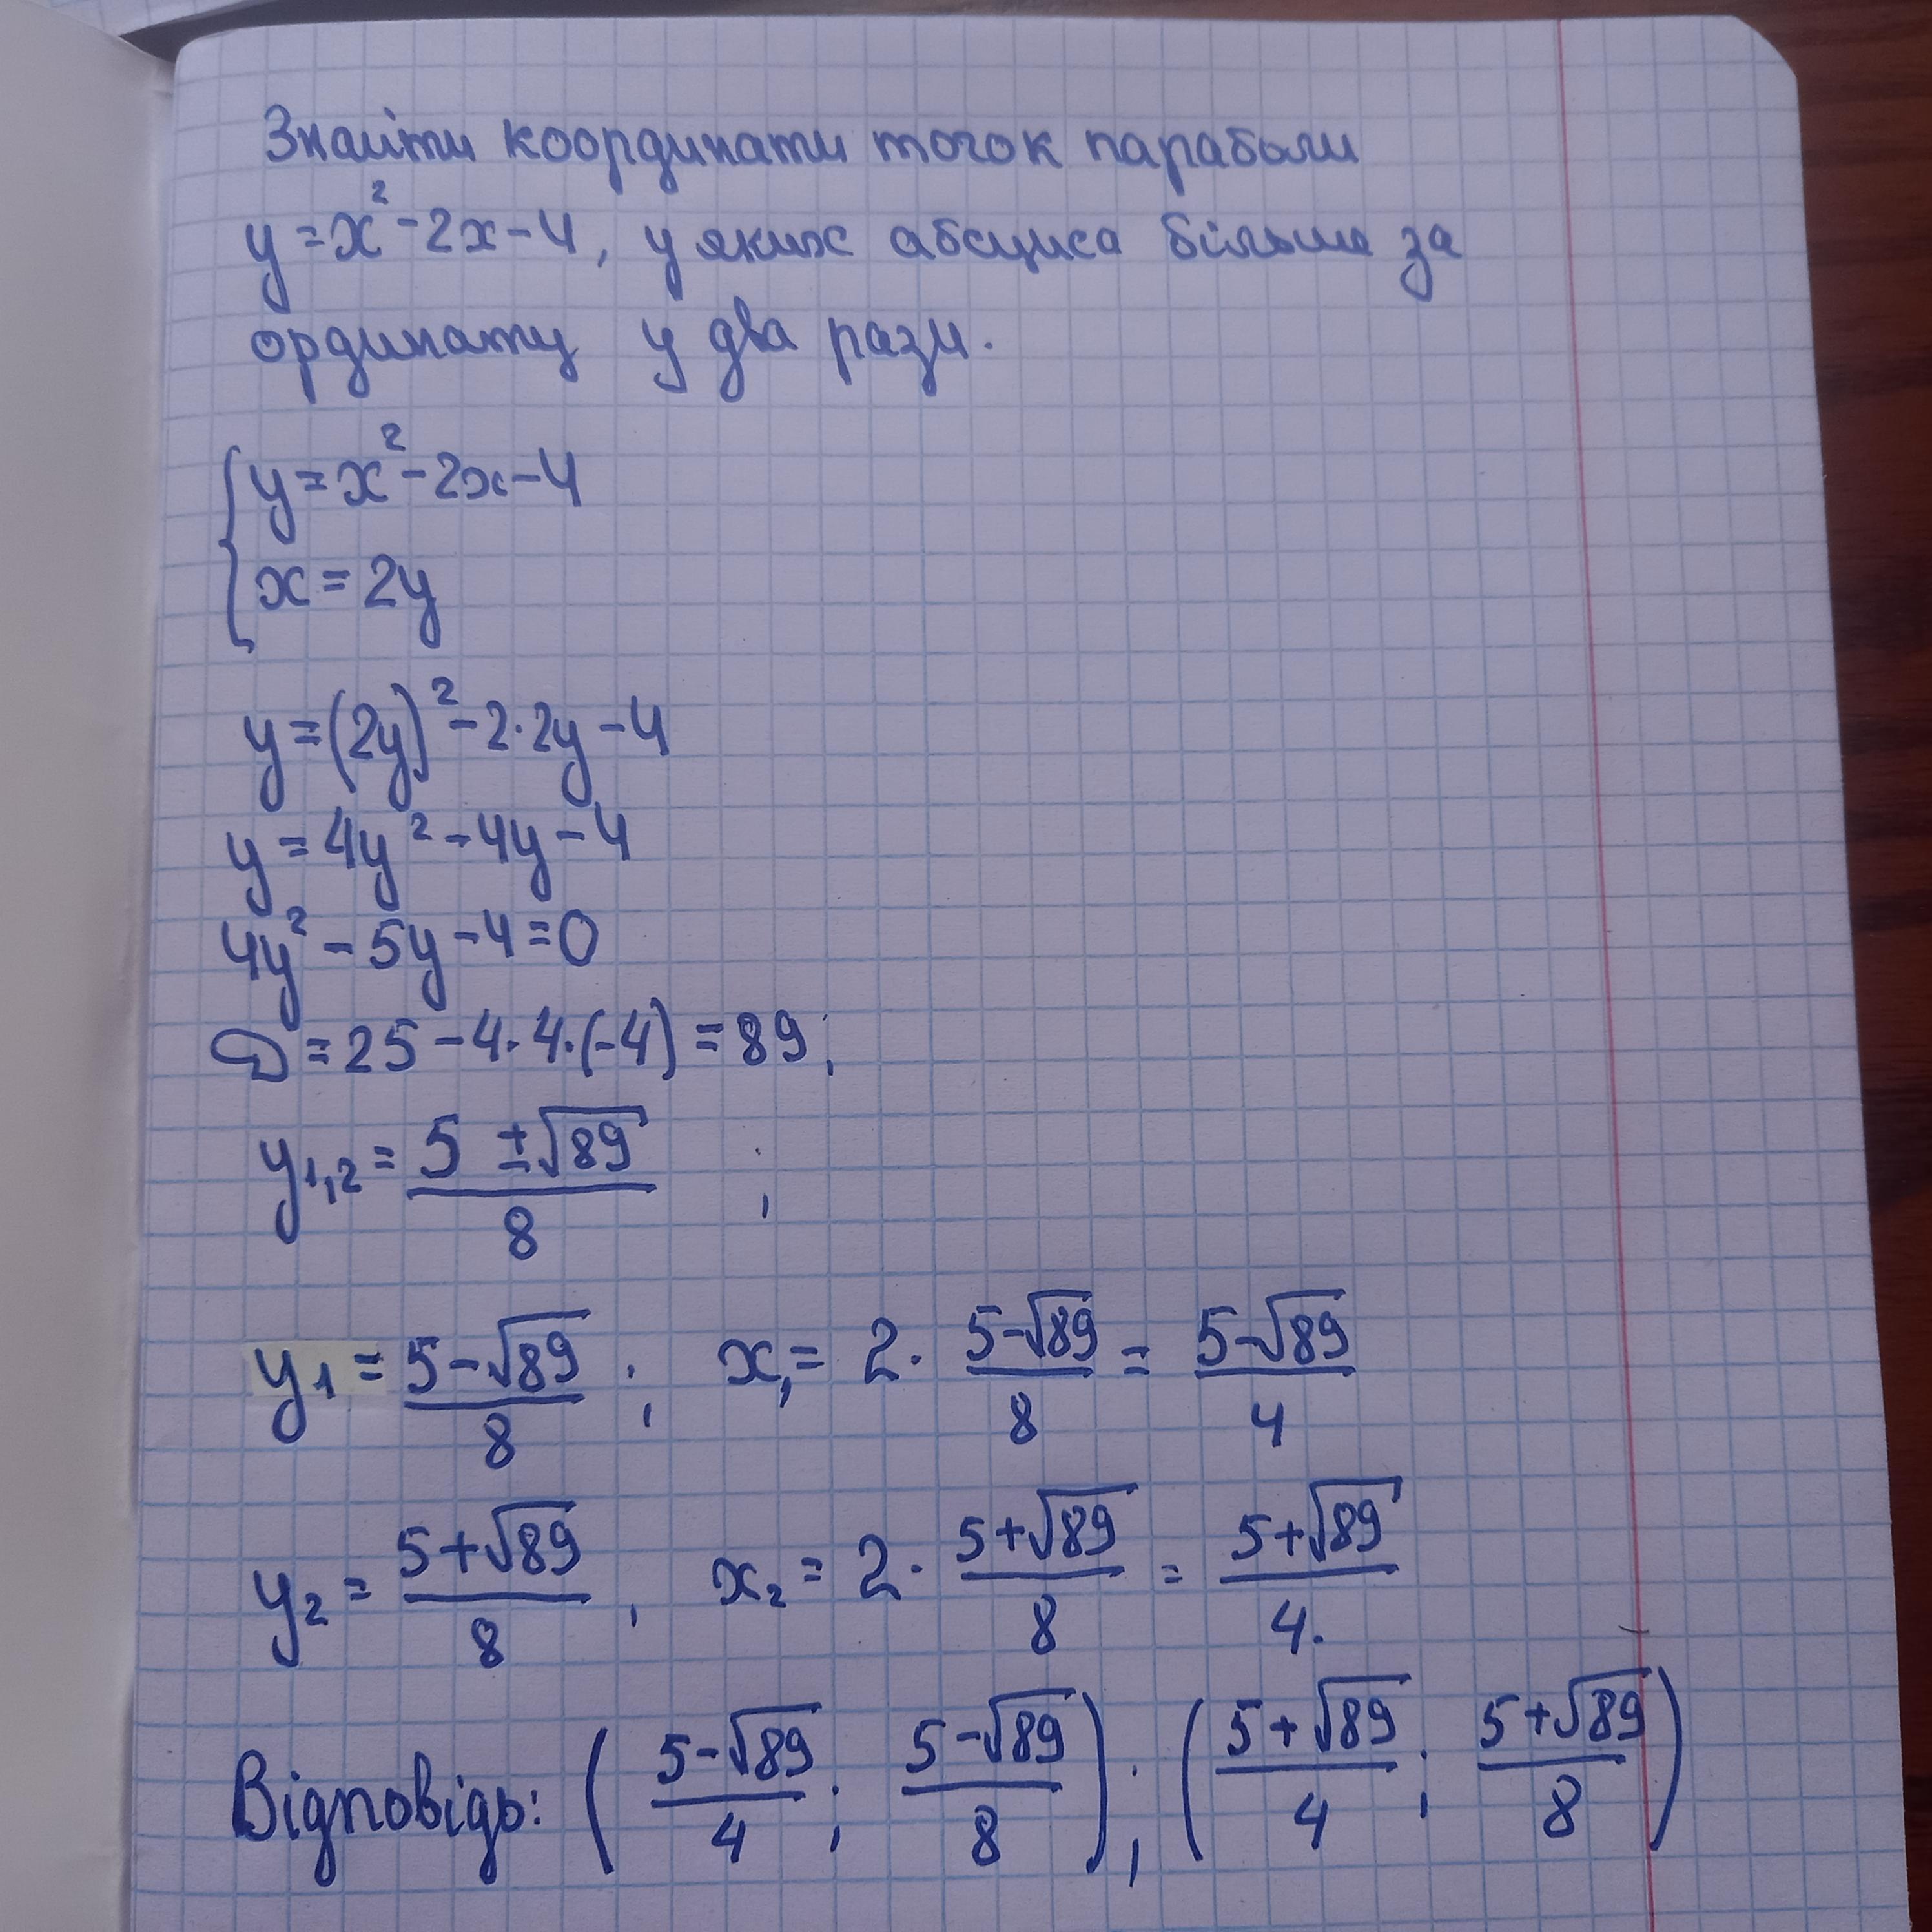 Знайти координати точок параболи
y = x² - 2x - 4, у яких абсциса більша за
ординату у два рази.
{ y = x² - 2x - 4
x = 2y
y = (2y)² - 2·2y - 4
y = 4y² - 4y - 4
4y² - 5y - 4 = 0
D = 25 - 4·4·(-4) = 89;
y₁,₂ = (5 ± √89)/8 ;
y₁ = (5 - √89)/8 ; x₁ = 2 · (5 - √89)/8 = (5 - √89)/4
y₂ = (5 + √89)/8 , x₂ = 2 · (5 + √89)/8 = (5 + √89)/4.
Відповідь: ((5 - √89)/4 ; (5 - √89)/8) ; ((5 + √89)/4 ; (5 + √89)/8)